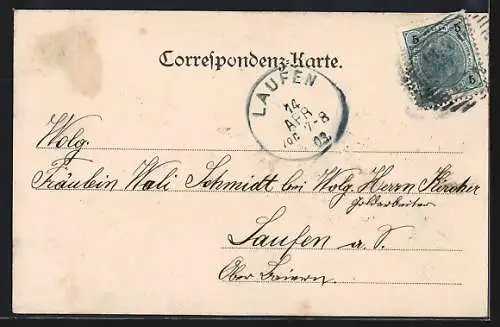 Correspondenz-Karte.
5 5
LAUFEN
14
APR
7-8
03
Wolg.
Fräulein Wali Schmidt bei Wolg. Herrn Kircher
Goldarbeiter
Laufen a. S.
Ober Baiern.